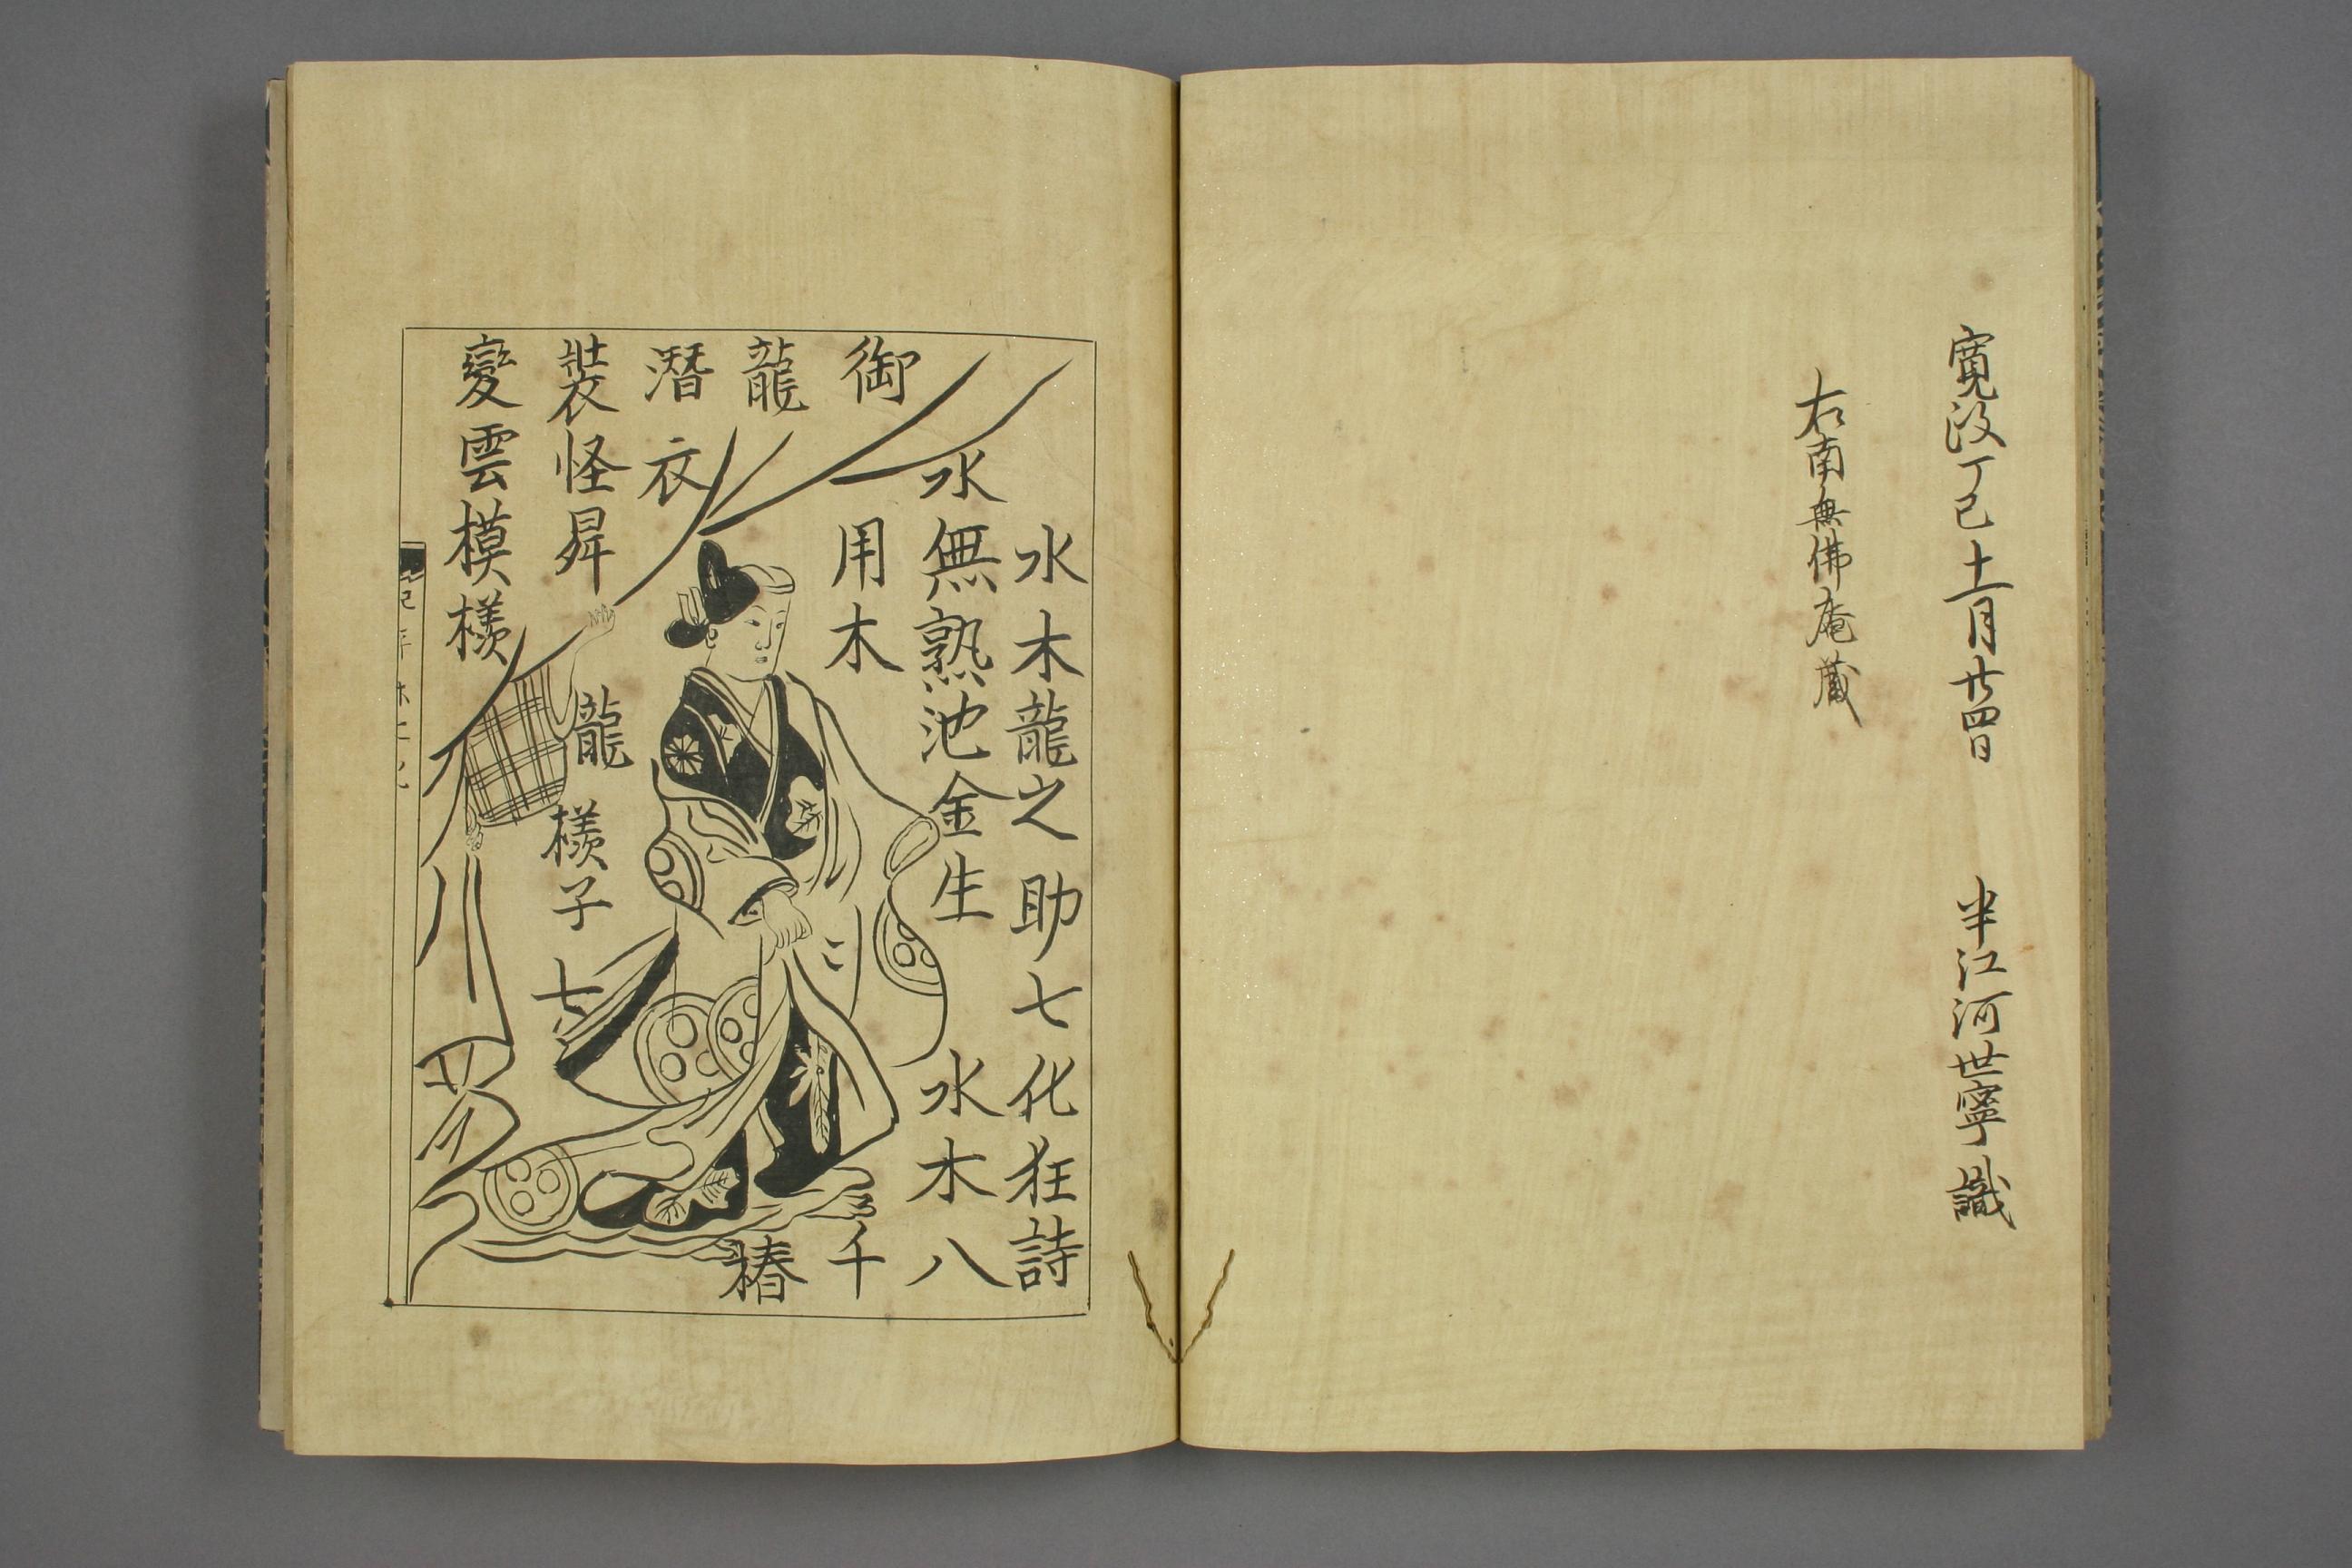 寛政丁巳十一月廿四日 半江河世寧識
右南無佛庵蔵
水木龍之助七化狂詩
水無熟池金生水木八
御用木千
龍椿
潜衣
装怪昇龍様子七
變雲模様